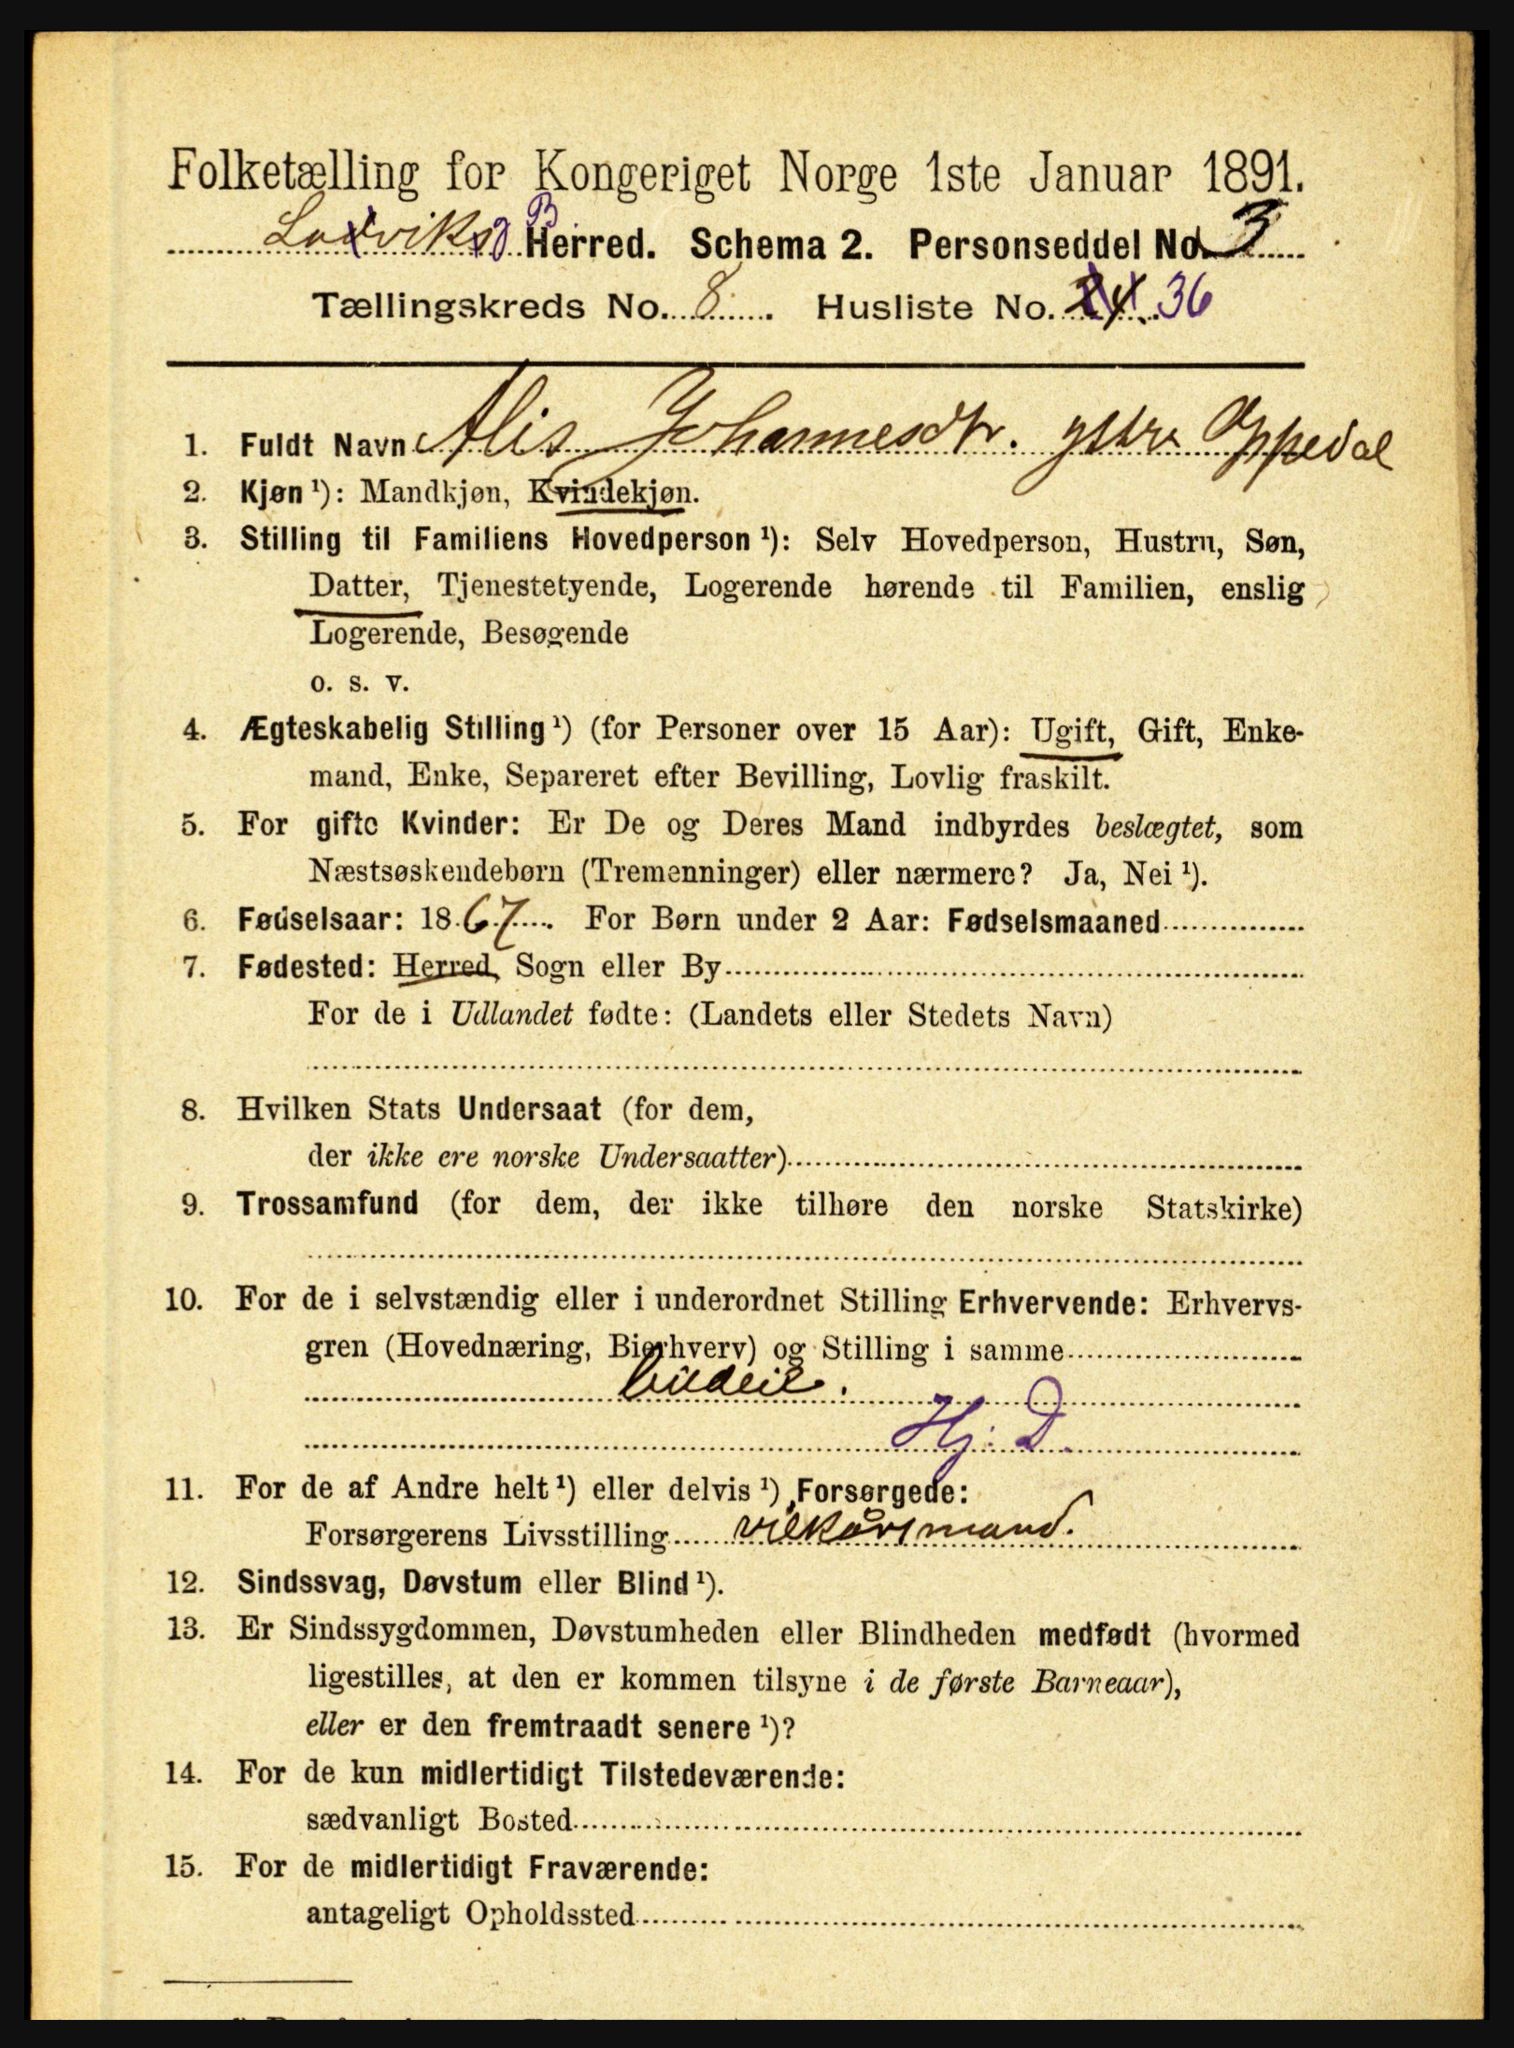 Folketælling for Kongeriget Norge 1ste Januar 1891.
Ladviks B Herred. Schema 2. Personseddel No 3
Tællingskreds No. 8. Husliste No. 24. 36
1. Fuldt Navn Alis Johannesdtr. ystre Oppedal
2. Kjøn ¹): Mandkjøn, Kvindekjøn.
3. Stilling til Familiens Hovedperson ¹): Selv Hovedperson, Hustru, Søn,
Datter, Tjenestetyende, Logerende hørende til Familien, enslig
Logerende, Besøgende
o. s. v.
4. Ægteskabelig Stilling ¹) (for Personer over 15 Aar): Ugift, Gift, Enke-
mand, Enke, Separeret efter Bevilling, Lovlig fraskilt.
5. For gifte Kvinder: Er De og Deres Mand indbyrdes beslægtet, som
Næstsøskendebørn (Tremenninger) eller nærmere? Ja, Nei ¹).
6. Fødselsaar: 1867. For Børn under 2 Aar: Fødselsmaaned
7. Fødested: Herred, Sogn eller By
For de i Udlandet fødte: (Landets eller Stedets Navn)
8. Hvilken Stats Undersaat (for dem,
der ikke ere norske Undersaatter)
9. Trossamfund (for dem, der ikke tilhøre den norske Statskirke)
10. For de i selvstændig eller i underordnet Stilling Erhvervende: Erhvervs-
gren (Hovednæring, Bierhverv) og Stilling i samme
budeie.
Hj. D.
11. For de af Andre helt ¹) eller delvis ¹) Forsørgede:
Forsørgerens Livsstilling vilkårsmand.
12. Sindssvag, Døvstum eller Blind ¹).
13. Er Sindssygdommen, Døvstumheden eller Blindheden medfødt (hvormed
ligestilles, at den er kommen tilsyne i de første Barneaar),
eller er den fremtraadt senere ¹)?
14. For de kun midlertidigt Tilstedeværende:
sædvanligt Bosted
15. For de midlertidigt Fraværende:
antageligt Opholdssted